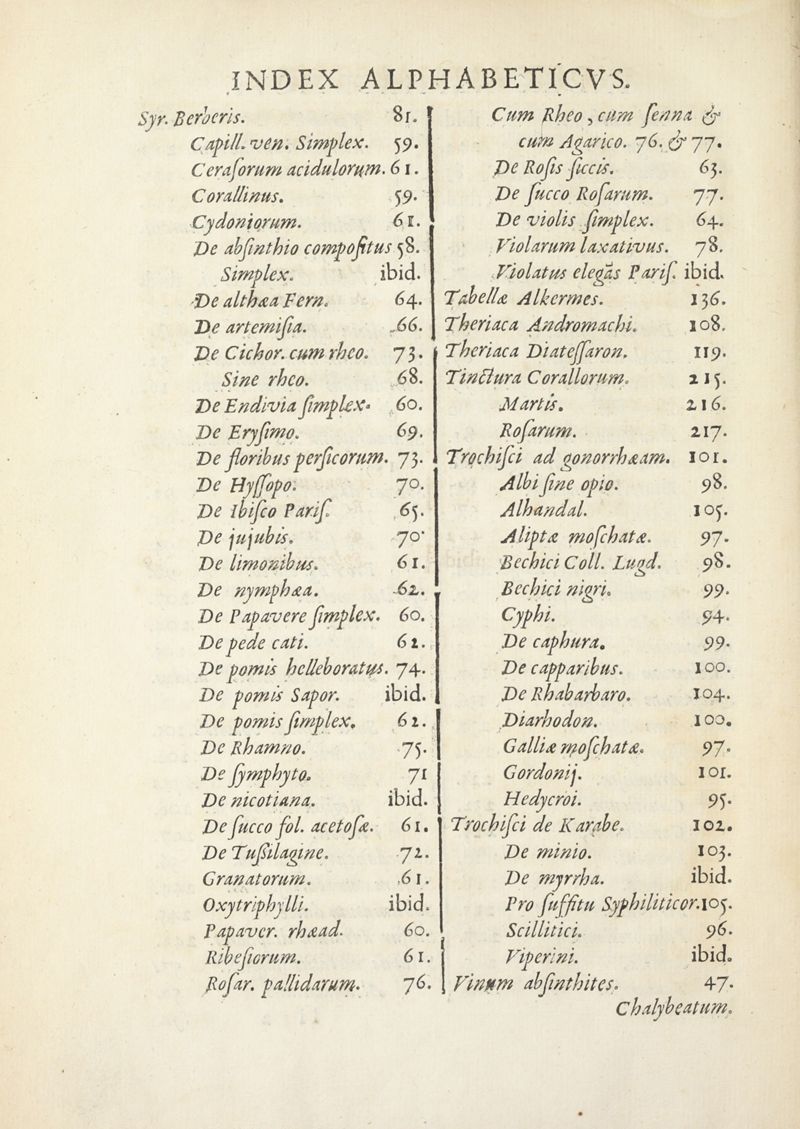 INDEX ALPHABETICVS.
Syr. Berberis. 81.
Capill. ven. Simplex. 59.
Ceraſorum acidulorum. 61.
Corallinus. 59.
Cydoniorum. 61.
De abſinthio compoſitus 58.
Simplex. ibid.
De althæa Fern. 64.
De artemiſia. 66.
De Cichor. cum rheo. 73.
Sine rheo. 68.
De Endivia ſimplex. 60.
De Eryſimo. 69.
De floribus perſicorum. 73.
De Hyſſopo. 70.
De Ibiſco Pariſ. 65.
De jujubis. 70.
De limonibus. 61.
De nymphæa. 62.
De Papavere ſimplex. 60.
De pede cati. 62.
De pomis helleboratus. 74.
De pomis Sapor. ibid.
De pomis ſimplex. 62.
De Rhamno. 75.
De ſymphyto. 71
De nicotiana. ibid.
De ſucco fol. acetoſæ. 61.
De Tuſſilagine. 72.
Granatorum. 61.
Oxytriphylli. ibid.
Papaver. rhæad. 60.
Ribeſiorum. 61.
Roſar. pallidarum. 76.
Cum Rheo, cum ſenna &
cum Agarico. 76. & 77.
De Roſis ſiccis. 63.
De ſucco Roſarum. 77.
De violis ſimplex. 64.
Violarum laxativus. 78.
Violatus elegãs Pariſ. ibid.
Tabellæ Alkermes. 136.
Theriaca Andromachi. 108.
Theriaca Diateſſaron. 119.
Tinctura Corallorum. 215.
Martis. 216.
Roſarum. 217.
Trochiſci ad gonorrhæam. 101.
Albi ſine opio. 98.
Alhandal. 105.
Aliptæ moſchatæ. 97.
Bechici Coll. Lugd. 98.
Bechici nigri. 99.
Cyphi. 94.
De caphura. 99.
De capparibus. 100.
De Rhabarbaro. 104.
Diarhodon. 100.
Galliæ moſchatæ. 97.
Gordonij. 101.
Hedycroi. 95.
Trochiſci de Karabe. 102.
De minio. 103.
De myrrha. ibid.
Pro ſuffitu Syphiliticor. 105.
Scillitici. 96.
Viperini. ibid.
Vinum abſinthites. 47.
Chalybeatum.